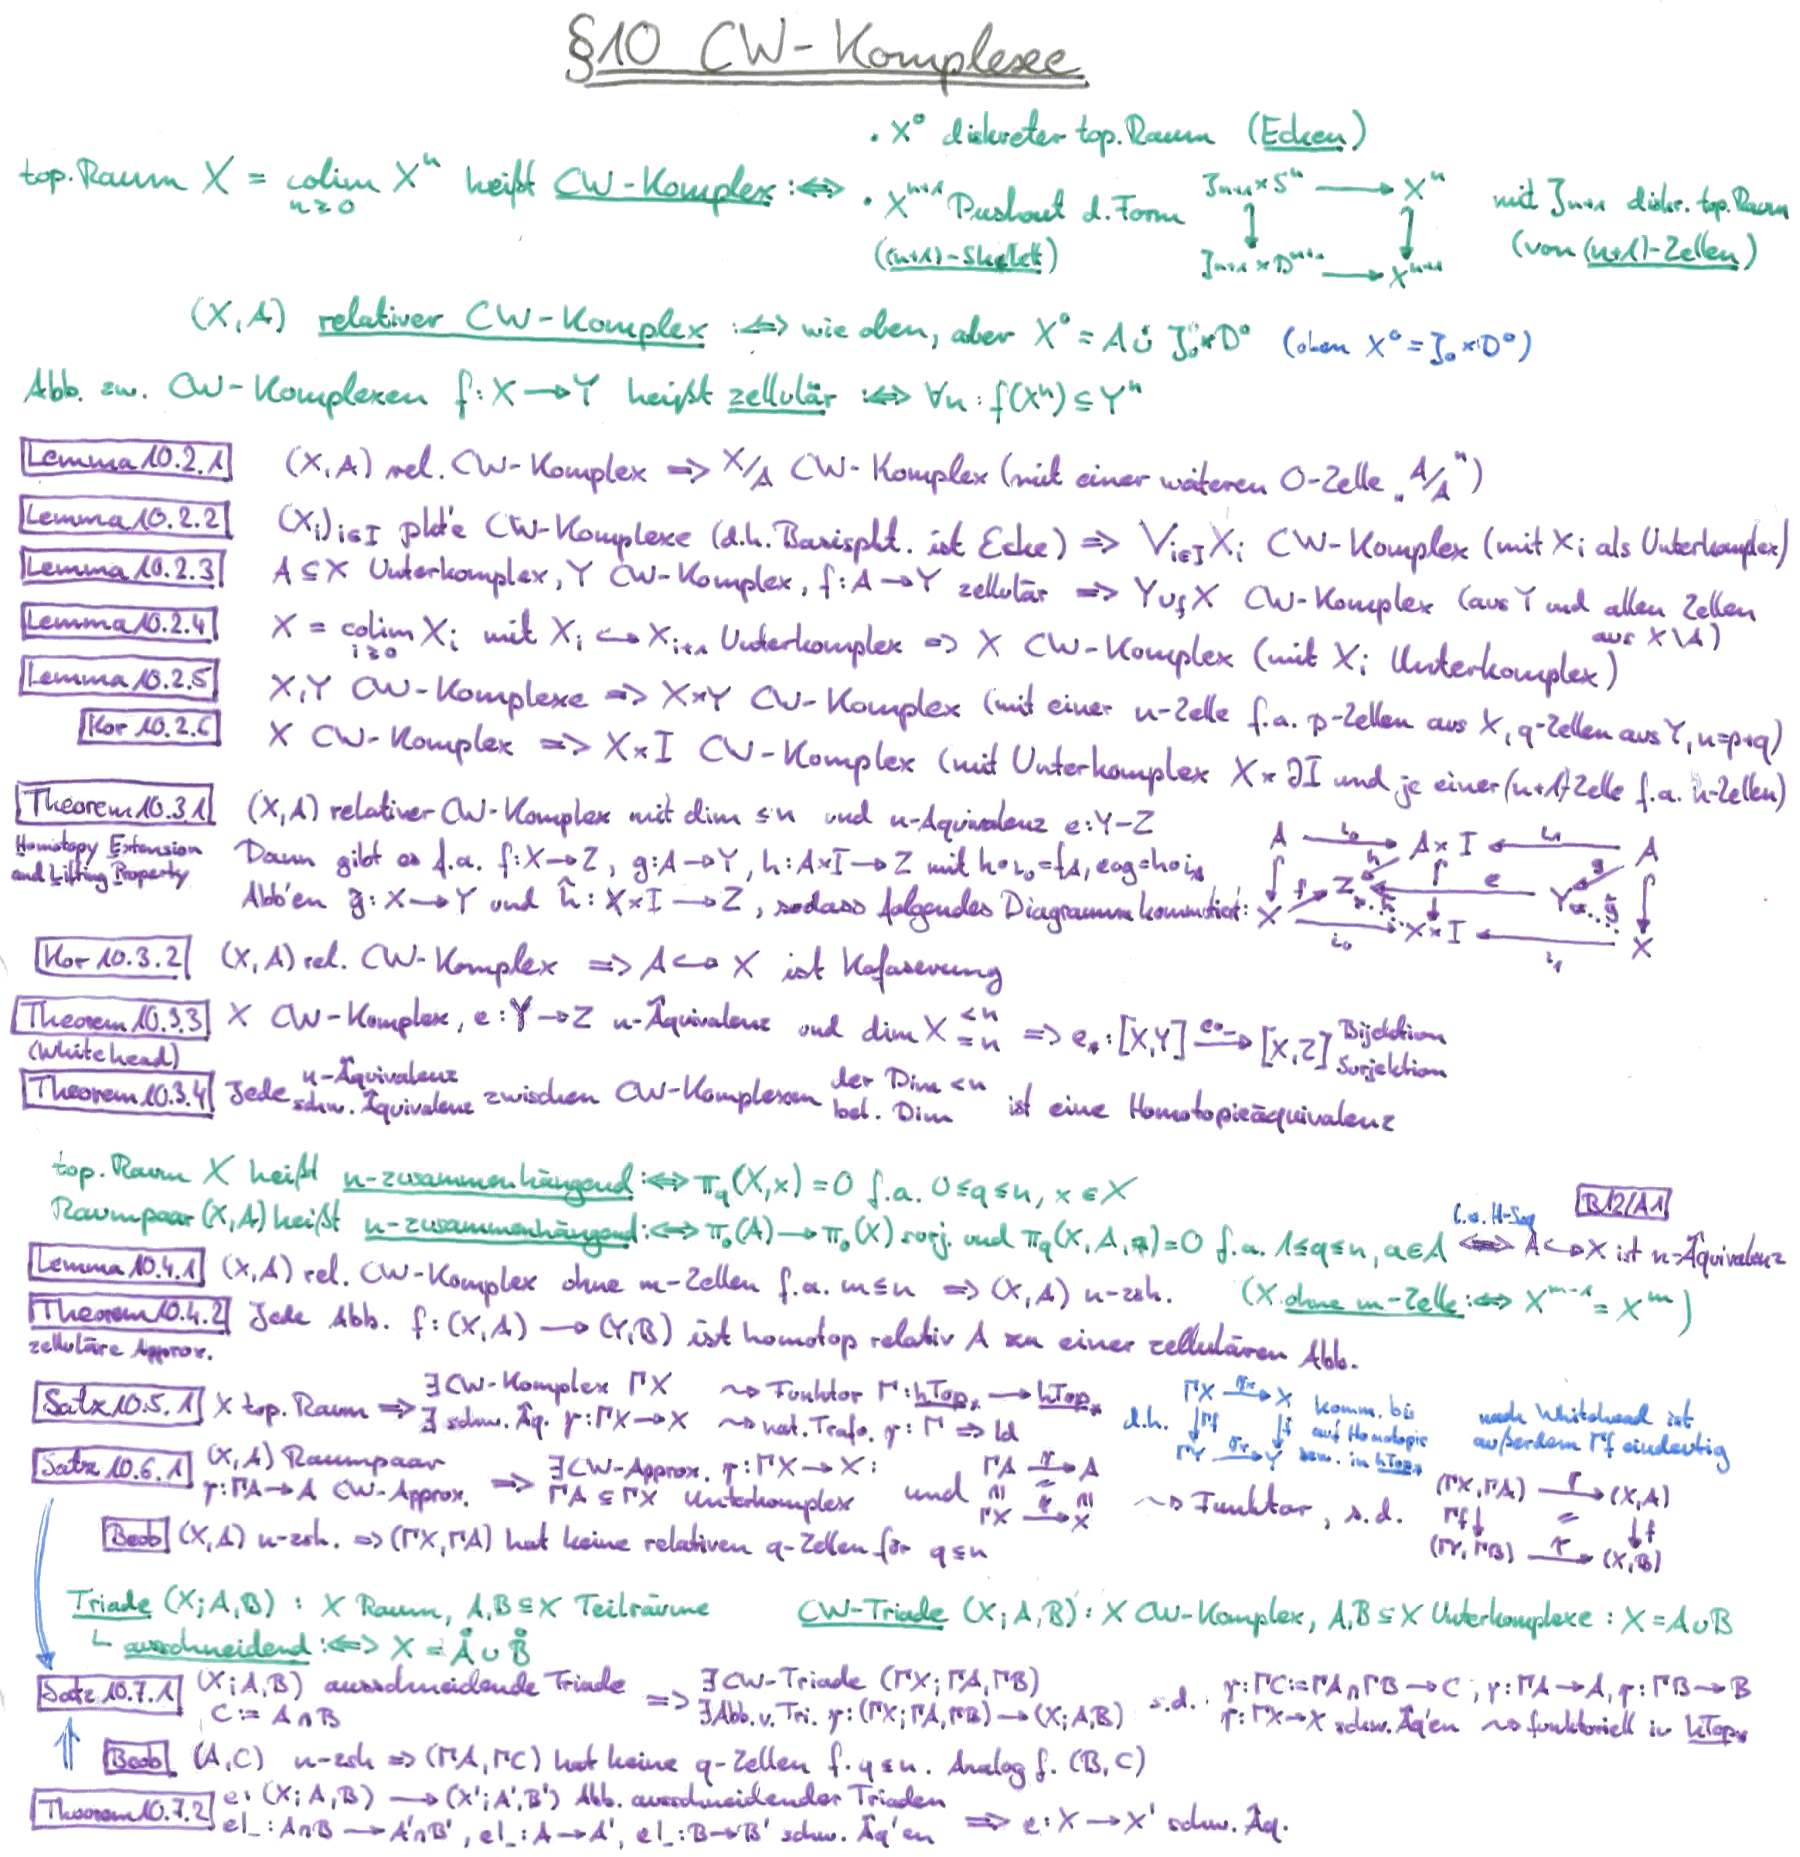 §10 CW-Komplexe
top. Raum X = colim_{n≥0} X^n heißt CW-Komplex :⇔
• X^0 diskreter top. Raum (Ecken)
• X^{n+1} Pushout d. Form
((n+1)-Skelett)
J_{n+1}×S^n → X^n
J_{n+1}×D^{n+1} → X^{n+1}
mit J_{n+1} diskr. top. Raum
(von (n+1)-Zellen)
(X,A) relativer CW-Komplex :⇔ wie oben, aber X^0 = A ∪̇ J_0×D^0 (oben X^0 = J_0×D^0)
Abb. zw. CW-Komplexen f: X → Y heißt zellulär :⇔ ∀n: f(X^n) ⊆ Y^n
Lemma 10.2.1 (X,A) rel. CW-Komplex ⇒ X/A CW-Komplex (mit einer weiteren 0-Zelle „A/A")
Lemma 10.2.2 (X_i)_{i∈I} pkt'e CW-Komplexe (d.h. Basispkt. ist Ecke) ⇒ ⋁_{i∈I} X_i CW-Komplex (mit X_i als Unterkomplex)
Lemma 10.2.3 A ⊆ X Unterkomplex, Y CW-Komplex, f: A → Y zellulär ⇒ Y ∪_f X CW-Komplex (aus Y und allen Zellen
aus X\A)
Lemma 10.2.4 X = colim_{i≥0} X_i mit X_i ↪ X_{i+1} Unterkomplex ⇒ X CW-Komplex (mit X_i Unterkomplex)
Lemma 10.2.5 X,Y CW-Komplexe ⇒ X×Y CW-Komplex (mit einer n-Zelle f.a. p-Zellen aus X, q-Zellen aus Y, n=p+q)
Kor 10.2.6 X CW-Komplex ⇒ X×I CW-Komplex (mit Unterkomplex X×∂I und je einer (n+1)-Zelle f.a. n-Zellen)
Theorem 10.3.1 (X,A) relativer CW-Komplex mit dim ≤ n und n-Äquivalenz e: Y → Z
Homotopy Extension
and Lifting Property
Dann gibt es f.a. f: X → Z, g: A → Y, h: A×I → Z mit h∘i_0 = f|_A, e∘g = h∘i_1
Abb'en g̃: X → Y und h̃: X×I → Z, sodass folgendes Diagramm kommutiert:
A i_0 A×I i_1 A
f Z h e Y g
h̃ g̃
X i_0 X×I i_1 X
Kor 10.3.2 (X,A) rel. CW-Komplex ⇒ A ↪ X ist Kofaserung
Theorem 10.3.3 X CW-Komplex, e: Y → Z n-Äquivalenz und dim X <n / =n ⇒ e_*: [X,Y] –e∘_→ [X,Z] Bijektion / Surjektion
(Whitehead)
Theorem 10.3.4 Jede n-Äquivalenz / schw. Äquivalenz zwischen CW-Komplexen der Dim <n / bel. Dim ist eine Homotopieäquivalenz
top. Raum X heißt n-zusammenhängend :⇔ π_q(X,x) = 0 f.a. 0≤q≤n, x∈X
B12/A1
Raumpaar (X,A) heißt n-zusammenhängend :⇔ π_0(A) → π_0(X) surj. und π_q(X,A,a) = 0 f.a. 1≤q≤n, a∈A ⇔ A ↪ X ist n-Äquivalenz
l.e. H-Seq
Lemma 10.4.1 (X,A) rel. CW-Komplex ohne m-Zellen f.a. m≤n ⇒ (X,A) n-zsh. (X ohne m-Zelle :⇔ X^{m-1} = X^m)
Theorem 10.4.2 Jede Abb. f: (X,A) → (Y,B) ist homotop relativ A zu einer zellulären Abb.
zelluläre Approx.
Satz 10.5.1 X top. Raum ⇒ ∃ CW-Komplex ΓX ⇝ Funktor Γ: hTop_* → hTop_*
∃ schw. Äq. γ: ΓX → X ⇝ nat. Trafo. γ: Γ ⇒ Id
d.h. ΓX –γ_X→ X
Γf f
ΓY –γ_Y→ Y
komm. bis
auf Homotopie
bzw. in hTop_*
nach Whitehead ist
außerdem Γf eindeutig
Satz 10.6.1 (X,A) Raumpaar
γ: ΓA → A CW-Approx. ⇒ ∃ CW-Approx. γ: ΓX → X:
ΓA ⊆ ΓX Unterkomplex und
ΓA –γ→ A
ΓX –γ→ X
⇝ Funktor, s.d.
(ΓX,ΓA) –γ→ (X,A)
Γf = f
(ΓY,ΓB) –γ→ (X,B)
Beob (X,A) n-zsh. ⇒ (ΓX,ΓA) hat keine relativen q-Zellen für q≤n
Triade (X;A,B): X Raum, A,B ⊆ X Teilräume
CW-Triade (X;A,B): X CW-Komplex, A,B ⊆ X Unterkomplexe: X = A∪B
↳ ausschneidend :⇔ X = Å ∪ B̊
Satz 10.7.1 (X;A,B) ausschneidende Triade
C := A∩B ⇒ ∃ CW-Triade (ΓX;ΓA,ΓB)
∃ Abb. v. Tri. γ: (ΓX;ΓA,ΓB) → (X;A,B) s.d.
γ: ΓC := ΓA∩ΓB → C, γ: ΓA → A, γ: ΓB → B
γ: ΓX → X schw. Äq'en ⇝ funktoriell in hTop_*
Beob (A,C) n-zsh ⇒ (ΓA,ΓC) hat keine q-Zellen f. q≤n. Analog f. (B,C)
Theorem 10.7.2 e: (X;A,B) → (X';A',B') Abb. ausschneidender Triaden
e|_: A∩B → A'∩B', e|_: A → A', e|_: B → B' schw. Äq'en ⇒ e: X → X' schw. Äq.